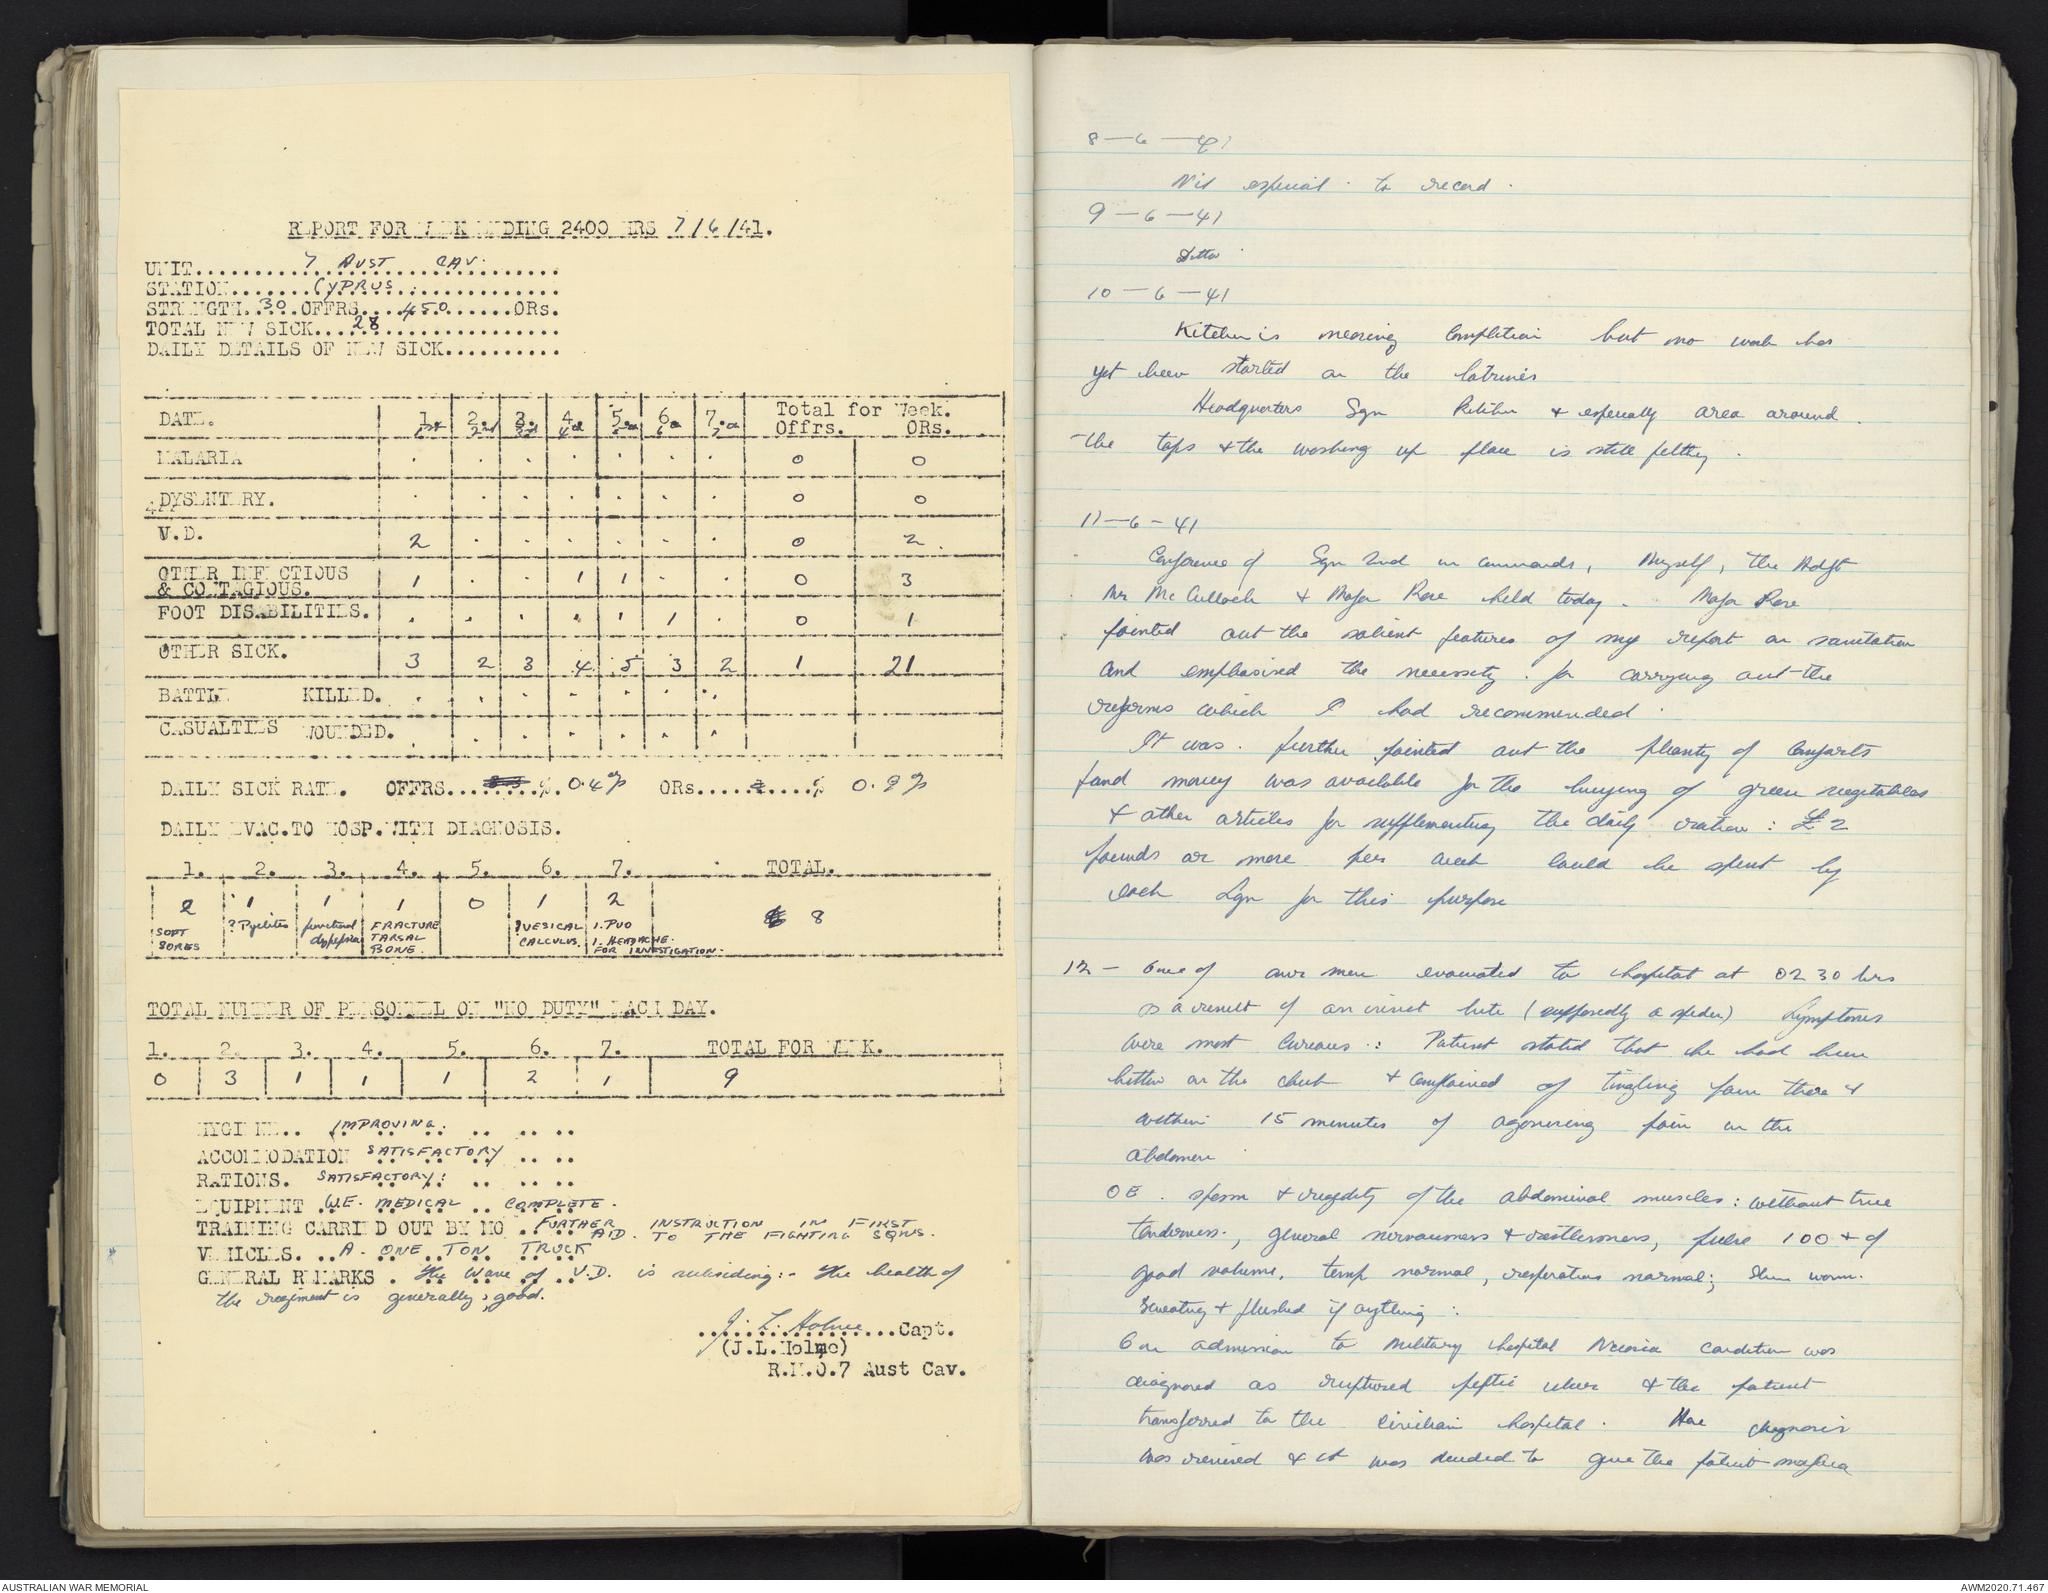 REPORT FOR WEEK ENDING 2400 HRS 7/6/41.
UNIT..........7 AUST CAV..........
STATION.......CYPRUS..........
STRENGTH.30.OFFRS....450.......ORs.
TOTAL NEW SICK...28..........
DAILY DETAILS OF NEW SICK..........
DATE. 1. 1st 2. 2nd 3. 3rd 4. 4th 5. 5th 6. 6th 7. 7th Total for Week. Offrs. ORs.
MALARIA . . . . . . . 0 0
DYSENTERY. . . . . . . . 0 0
V.D. 2 . . . . . . 0 2
OTHER INFECTIOUS & CONTAGIOUS. 1 . . 1 1 . . 0 3
FOOT DISABILITIES. . . . . . 1 . 0 1
OTHER SICK. 3 2 3 4 5 3 2 1 21
BATTLE KILLED. . . . . . . .
CASUALTIES WOUNDED. . . . . . . .
DAILY SICK RATE. OFFRS..........%. 0.4% ORs..........% 0.9%
DAILY EVAC.TO HOSP.WITH DIAGNOSIS.
1. 2. 3. 4. 5. 6. 7. TOTAL.
2 1 1 1 0 1 2 8
SOFT SORES ? Pyelites functional dyspepsia FRACTURE TARSAL BONE. ?VESICAL CALCULUS. 1. PUO 1. HEADACHE. FOR INVESTIGATION.
TOTAL NUMBER OF PERSONELL ON "NO DUTY" EACH DAY.
1. 2. 3. 4. 5. 6. 7. TOTAL FOR WEEK.
0 3 1 1 1 2 1 9
HYGIENE.. IMPROVING. .. .. ..
ACCOMMODATION SATISFACTORY .. ..
RATIONS. SATISFACTORY: .. .. ..
EQUIPMENT W.E. MEDICAL COMPLETE.
TRAINING CARRIED OUT BY MO. FURTHER INSTRUCTION IN FIRST
AID. TO THE FIGHTING SQNS.
VEHICLES. .. A ONE TON TRUCK
GENERAL REMARKS. The wave of V.D. is subsiding:- The health of
the regiment is generally good.
J. L. Holme......Capt.
(J.L.Holme)
R.M.O.7 Aust Cav.
8-6-41
Nil especial to record.
9-6-41
Ditto
10-6-41
Kitchen is nearing completion but no work has
yet been started on the latrines
Headquarters Sqn kitchen & especially area around
the taps & the washing up place is still filthy.
11-6-41
Conference of Sqn 2nd in commands, Myself, the Adjt
Mr McCulloch & Major Rose held today. Major Rose
pointed out the salient features of my report on sanitation
and emphasised the necessity for carrying out the
reforms which I had recommended.
It was further pointed out the plenty of Comforts
fund money was available for the buying of green vegetables
& other articles for supplementing the daily ration: £2
pounds or more per week could be spent by
each Sqn for this purpose
12 - One of our men evacuated to hospital at 0230 hrs
as a result of an insect bite (supposedly a spider) Symptoms
were most curious: Patient stated that he had been
bitten on the chest & complained of tingling pain there &
within 15 minutes of agonising pain in the
abdomen
OE. spasm & rigidity of the abdominal muscles: without true
tenderness, general nervousness & restlessness, pulse 100 & of
good volume, temp normal, respirations normal; skin warm.
Sweating & flushed if anything:
On admission to Military hospital Nicosia condition was
diagnosed as ruptured peptic ulcer & the patient
transferred to the civilian hospital. Here diagnosis
was revised & it was decided to give the patient morphia
AUSTRALIAN WAR MEMORIAL
AWM2020.71.467